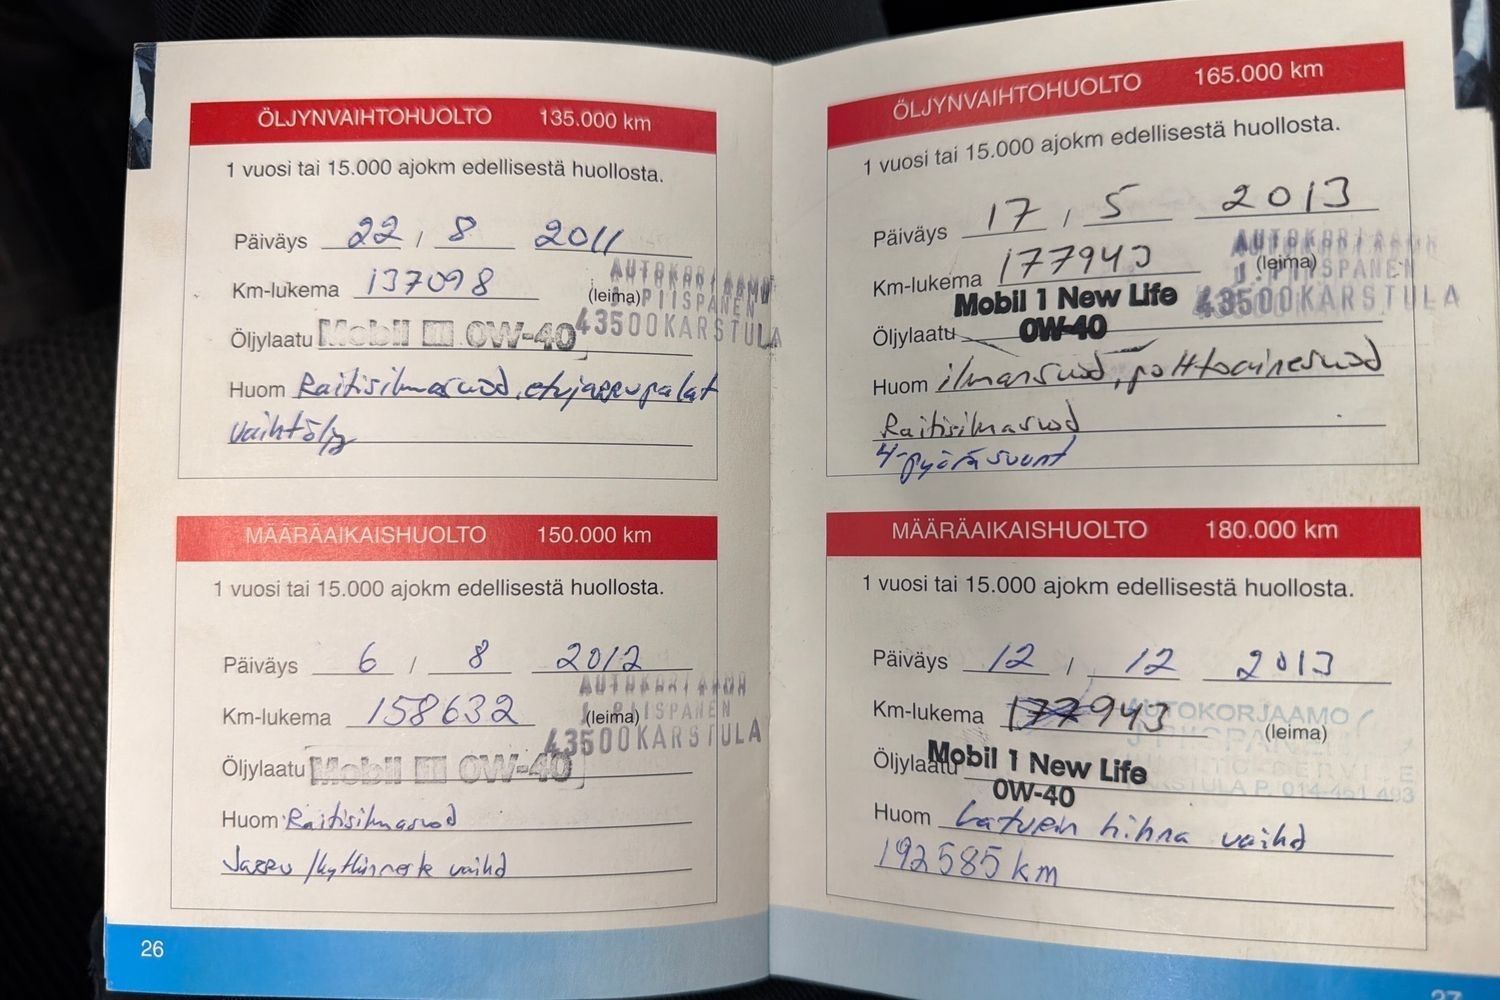 ÖLJYNVAIHTOHUOLTO 135.000 km
1 vuosi tai 15.000 ajokm edellisestä huollosta.
Päiväys 22 / 8 2011
Km-lukema 137098 (leima)
AUTOKORJAAMO
J. PIISPANEN
43500 KARSTULA
Öljylaatu Mobil 1 0W-40
Huom Raitisilmasuod, etujarrupalat
vaihtöljy
MÄÄRÄAIKAISHUOLTO 150.000 km
1 vuosi tai 15.000 ajokm edellisestä huollosta.
Päiväys 6 / 8 2012
Km-lukema 158632 (leima)
AUTOKORJAAMO
J. PIISPANEN
43500 KARSTULA
Öljylaatu Mobil 1 0W-40
Huom Raitisilmasuod
Jarru/kytkinneste vaihd
26
ÖLJYNVAIHTOHUOLTO 165.000 km
1 vuosi tai 15.000 ajokm edellisestä huollosta.
Päiväys 17 / 5 2013
Km-lukema 177943 (leima)
AUTOKORJAAMO
J. PIISPANEN
43500 KARSTULA
Öljylaatu Mobil 1 New Life
0W-40
Huom ilmansuod, polttoainesuod
Raitisilmasuod
4-pyöräsuunt
MÄÄRÄAIKAISHUOLTO 180.000 km
1 vuosi tai 15.000 ajokm edellisestä huollosta.
Päiväys 12 / 12 2013
Km-lukema 177943 (leima)
AUTOKORJAAMO
J. PIISPANEN
KARSTULA P. 014-461 493
Öljylaatu Mobil 1 New Life
0W-40
Huom Laturin hihna vaihd
192585 km
27